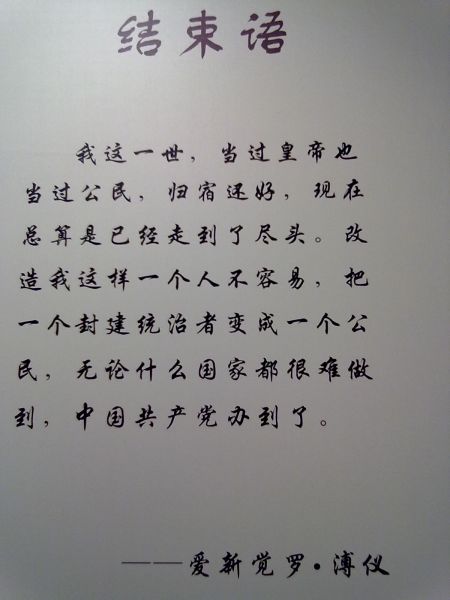 结束语
我这一世，当过皇帝也
当过公民，归宿还好，现在
总算是已经走到了尽头。改
造我这样一个人不容易，把
一个封建统治者变成一个公
民，无论什么国家都很难做
到，中国共产党办到了。
——爱新觉罗·溥仪